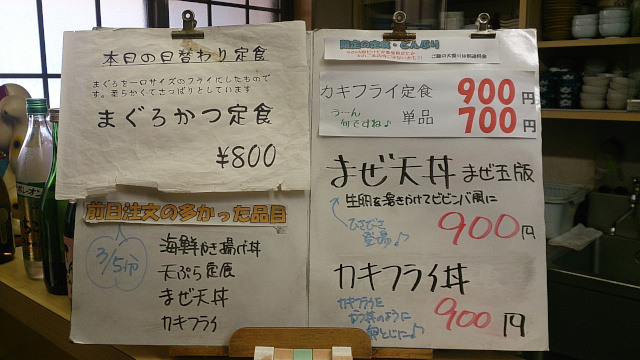 本日の日替わり定食
まぐろを一口サイズのフライにしたもので
す。柔らかくてさっぱりとしています
まぐろかつ定食
¥800
前日注文の多かった品目
3/5分
海鮮かき揚げ丼
天ぷら定食
まぜ天丼
カキフライ
限定の定食・どんぶり
ご飯の大盛りは別途料金
カキフライ定食 900円
うーん
何ですね♪
単品 700円
まぜ天丼 まぜ玉版
生卵を落きかけてビビンバ風に
ひさびさ
登場♪
900円
カキフライ丼
カキフライを
カツ丼のように
卵とじに♪
900円